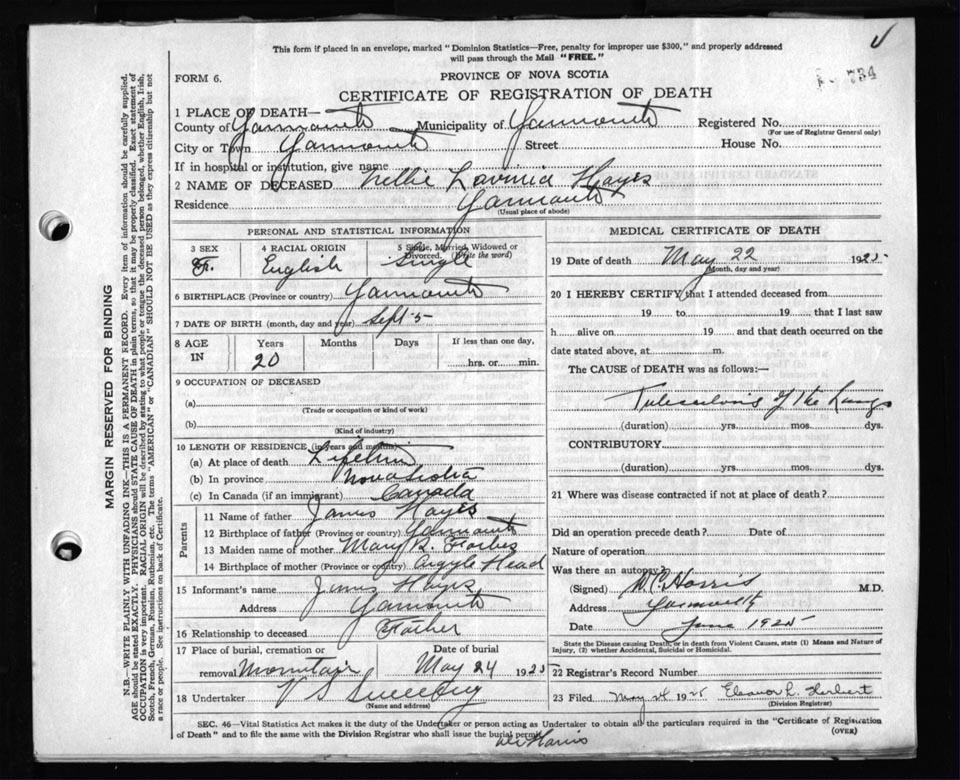 This form if placed in an envelope, marked "Dominion Statistics—Free, penalty for improper use $300," and properly addressed
will pass through the Mail "FREE."
FORM 6.
PROVINCE OF NOVA SCOTIA
CERTIFICATE OF REGISTRATION OF DEATH
1 PLACE OF DEATH—
County of Yarmouth Municipality of Yarmouth Registered No.
(For use of Registrar General only)
City or Town Yarmouth Street House No.
If in hospital or institution, give name
2 NAME OF DECEASED Nellie Lavinia Hayes
Residence Yarmouth
(Usual place of abode)
PERSONAL AND STATISTICAL INFORMATION
3 SEX 4 RACIAL ORIGIN 5 Single, Married, Widowed or
Divorced. (Write the word)
F. English Single
6 BIRTHPLACE (Province or country) Yarmouth
7 DATE OF BIRTH (month, day and year) Sept 5
8 AGE Years Months Days If less than one day,
IN 20 hrs. or min.
9 OCCUPATION OF DECEASED
(a)
(Trade or occupation or kind of work)
(b)
(Kind of industry)
10 LENGTH OF RESIDENCE (in years and months)
(a) At place of death Lifetime
(b) In province Nova Scotia
(c) In Canada (if an immigrant) Canada
Parents
11 Name of father James Hayes
12 Birthplace of father (Province or country) Yarmouth
13 Maiden name of mother Mary
14 Birthplace of mother (Province or country) Argyle Head
15 Informant's name James Hayes
Address Yarmouth
16 Relationship to deceased Father
17 Place of burial, cremation or Date of burial
removal Mountain May 24 1925
18 Undertaker V S Sweeny
(Name and address)
MEDICAL CERTIFICATE OF DEATH
19 Date of death May 22 1925
(Month, day and year)
20 I HEREBY CERTIFY that I attended deceased from
19 to 19 that I last saw
h alive on 19 and that death occurred on the
date stated above, at m.
The CAUSE of DEATH was as follows:—
Tuberculosis of the Lungs
(duration) yrs. mos. dys.
CONTRIBUTORY
(duration) yrs. mos. dys.
21 Where was disease contracted if not at place of death?
Did an operation precede death? Date of
Nature of operation
Was there an autopsy?
(Signed) W.C. Harris M.D.
Address Yarmouth
Date June 1925
State the Disease causing Death, or in death from Violent Causes, state (1) Means and Nature of
Injury, (2) whether Accidental, Suicidal or Homicidal.
22 Registrar's Record Number
23 Filed May 24 1925 Eleanor L. Herbert
(Division Registrar)
SEC. 46—Vital Statistics Act makes it the duty of the Undertaker or person acting as Undertaker to obtain all the particulars required in the "Certificate of Registration
of Death" and to file the same with the Division Registrar who shall issue the burial permit.
(OVER)
Harris
MARGIN RESERVED FOR BINDING
N.B.—WRITE PLAINLY WITH UNFADING INK—THIS IS A PERMANENT RECORD. Every item of information should be carefully supplied.
AGE should be stated EXACTLY. PHYSICIANS should STATE CAUSE OF DEATH in plain terms, so that it may be properly classified. Exact statement of
OCCUPATION is very important. RACIAL ORIGIN will be described by stating to what people or tongue the deceased person belonged, whether English, Irish,
Scotch, French, German, Russian, Ruthenian, etc. The terms "AMERICAN" or "CANADIAN" SHOULD NOT BE USED as they express citizenship but not
a race or people. See instructions on back of Certificate.